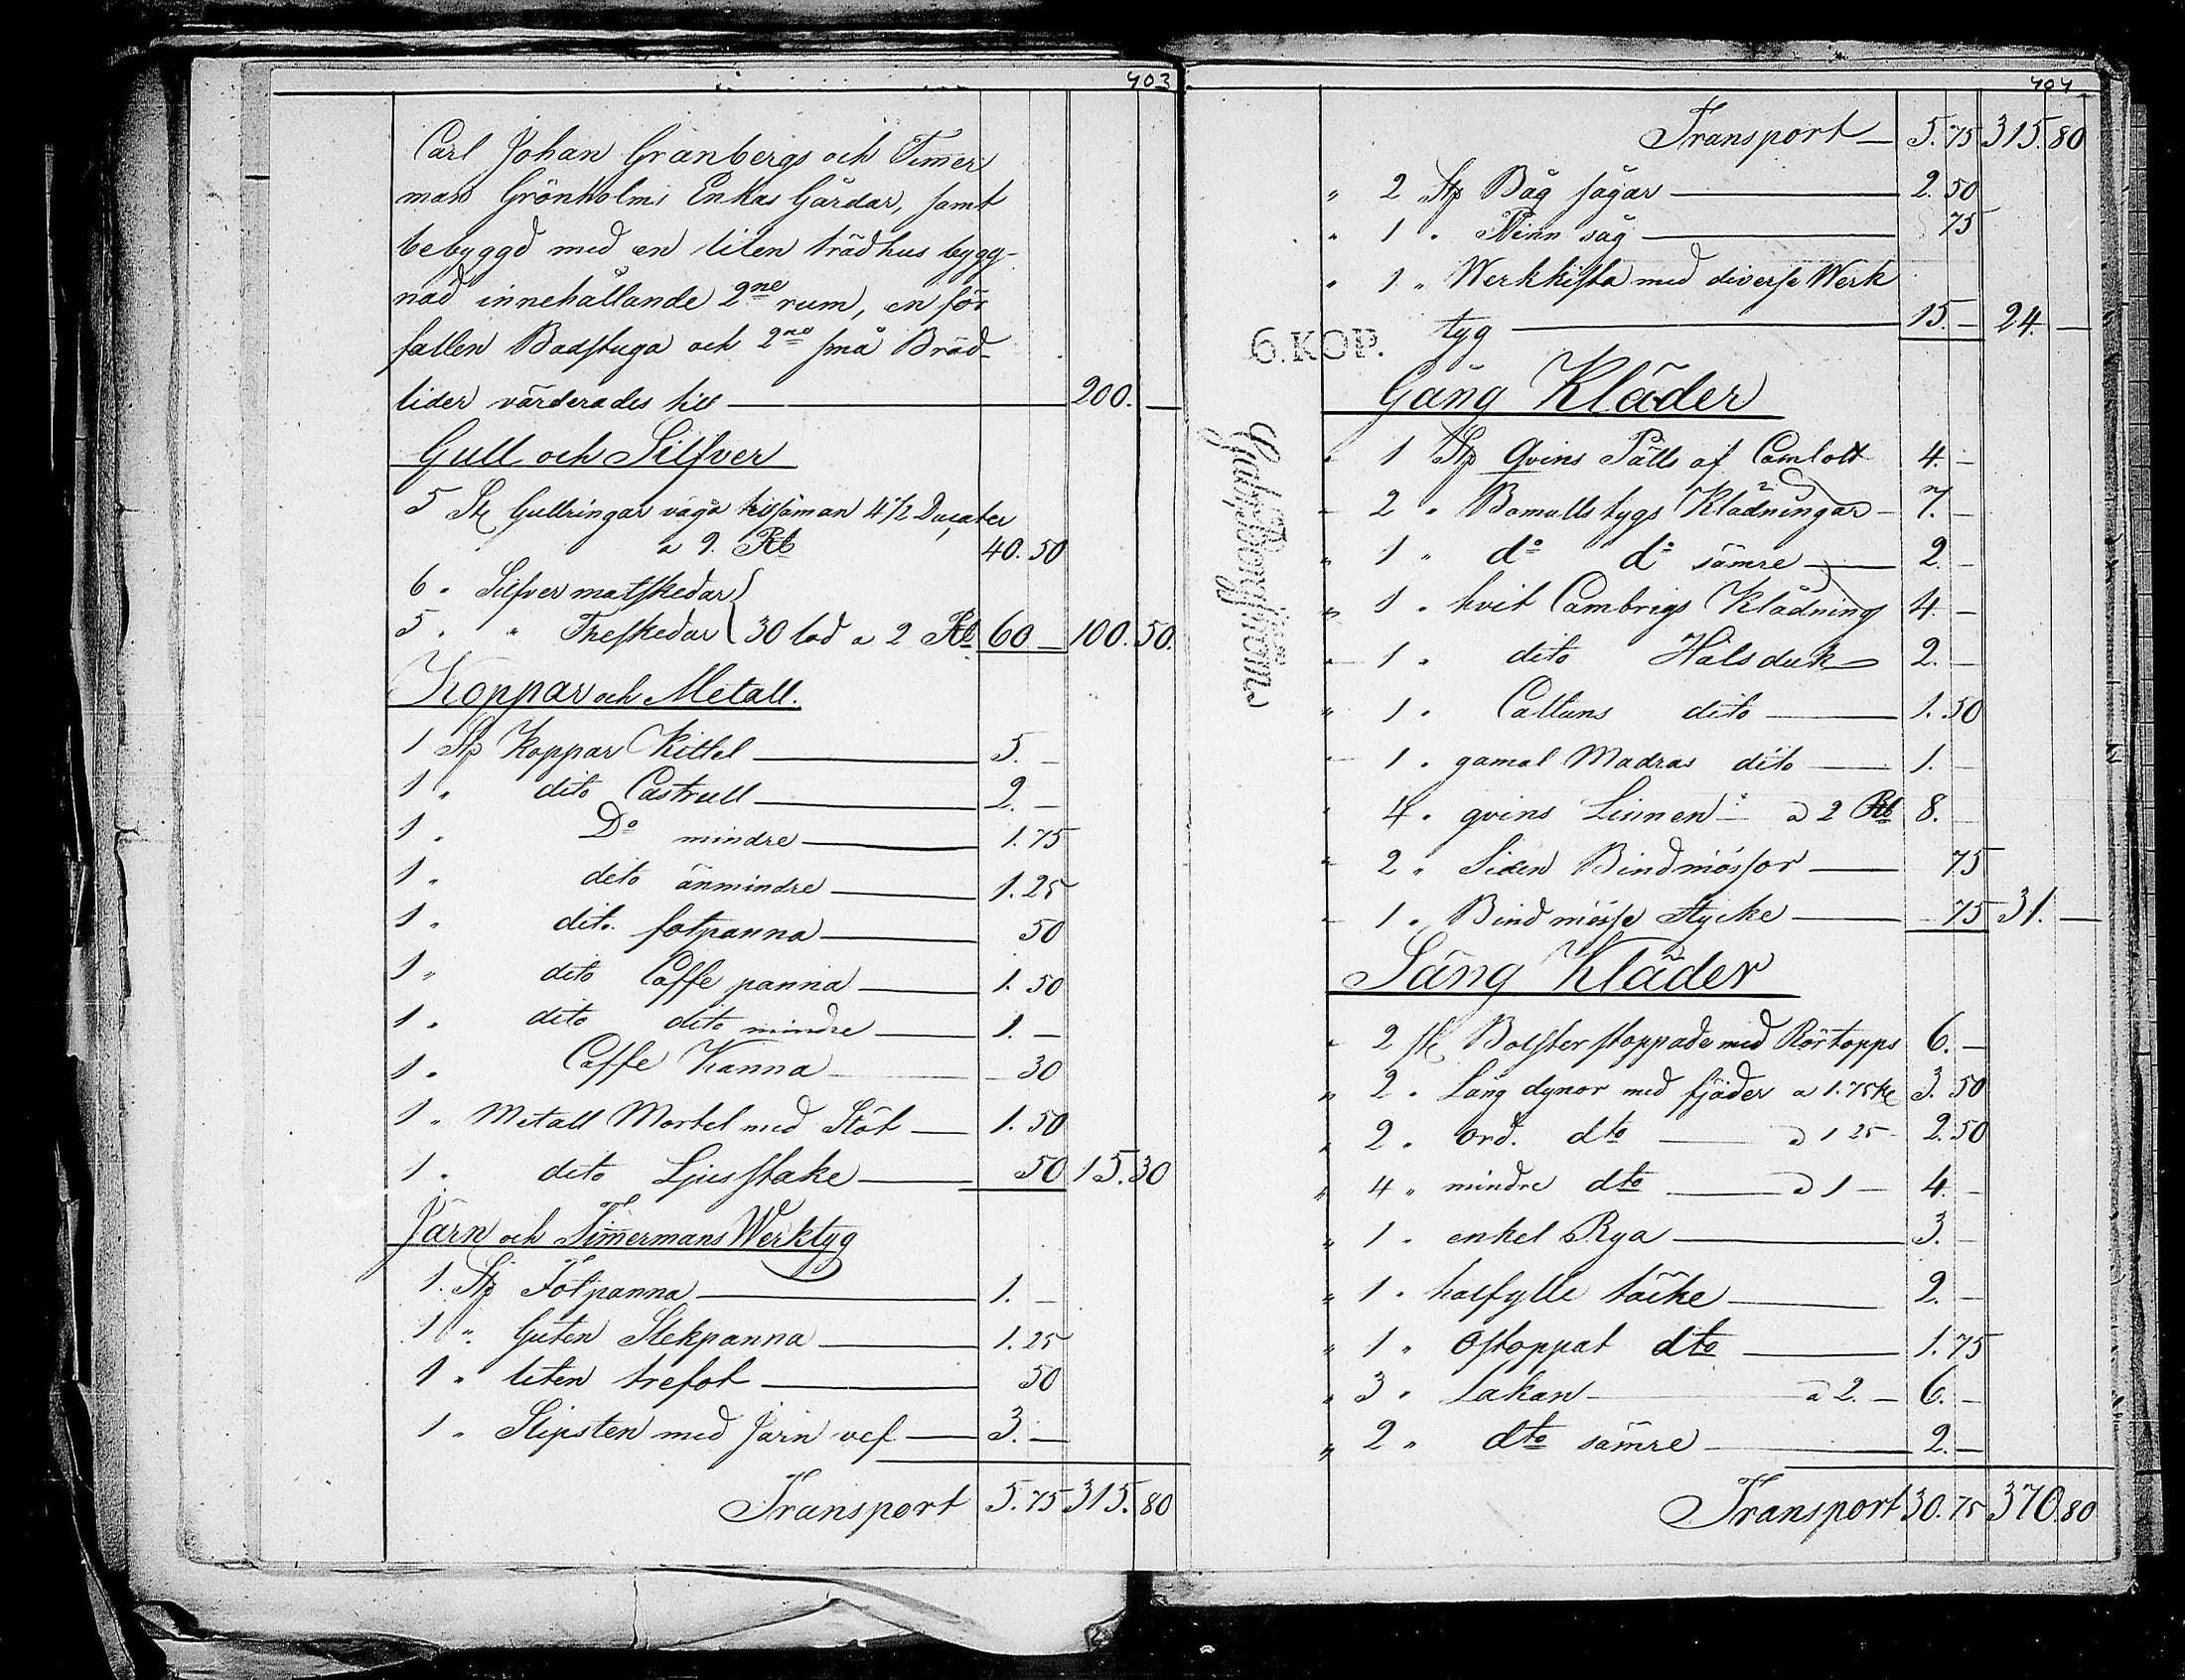 403
Carl Johan Granbergs och Timer
mans Grönholms Enkas Gårdar, samt
bebyggd med en liten trädhus bygg-
nad innehållande 2ne rum, en för
fallen Badstuga och 2ne små Bräd-
lider värderades till — 200. —
Gull och Silfver
5 St Gullringar väga tillsáman 4 1/2 Ducater
a 9. Rb 40. 50
6 " Silfver matskedar
5 " " Theskedar 30 lod a 2 Rb 60 — 100. 50.
Koppar och Metall.
1 St Koppar Kittel — 5. —
1 " dito Castrull — 2. —
1 " Do mindre — 1. 75
1 " dito änmindre — 1. 25
1 " dito fotpanna — 50
1 " dito Caffe panna — 1. 50
1 " dito dito mindre — 1. —
1 " Caffe Kanna — 30
1 " Metall Mortel med Stöt — 1. 50
1 " dito Ljusstake — 50 15. 30
Järn och Timermans Werktyg
1 St Fotpanna — 1. —
1 " Guten Stekpanna — 1. 25
1 " liten trefot — 50
1 " Slipsten med Järn vef — 3. —
Transport 5. 75 315. 80
404
Transport — 5. 75 315. 80
" 2 St Båg sågar — 2. 50
" 1 " Pinn såg — 75
" 1 " Werkkista med diverse Werk
tyg — 15. — 24. —
6. KOP.
Gång Kläder
" 1 St Qvins Pälls af Camlott 4. —
" 2 " Bomullstygs Klädningar — 7. —
" 1 " do do sämre — 2. —
" 1 " hvit Cambrigs Klädning 4 —
" 1 " dito Halsduk — 2. —
" 1 " Cattuns dito — 1. 50
" 1 " gamal Madras dito — 1. —
" 4 " qvins Linnen — a 2 Rb 8. —
" 2 " Siden Bindmössor — 75
" 1 " Bindmösse Stycke — 75 31. —
Säng Kläder
" 2 St Bolster stoppade med Rörtopps 6. —
" 2 " Lång dynor med fjäder a 1. 75 k 3. 50
" 2 " ord. dto — a 1 25 — 2. 50
" 4 " mindre dto — a 1 — 4. —
" 1 " enkel Rya — 3. —
" 1 " halfylle täcke — 2. —
" 1 " Ostoppat dto — 1. 75
" 3 " Lakan — a 2. — 6. —
" 2 " dto sämre — 2. —
Transport 30. 75 370. 80